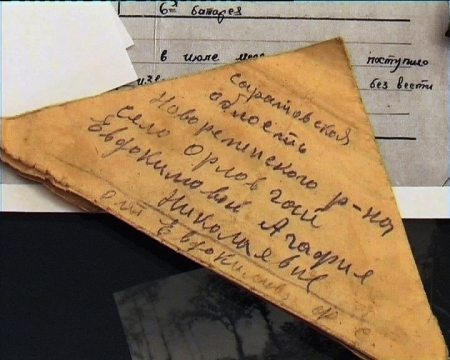 6-я батарея
в июле поступило
без вести
Саратовская
область
Новорепинского р-на
село Орлов Гай
Евдокимовой Агафие
Николаевне